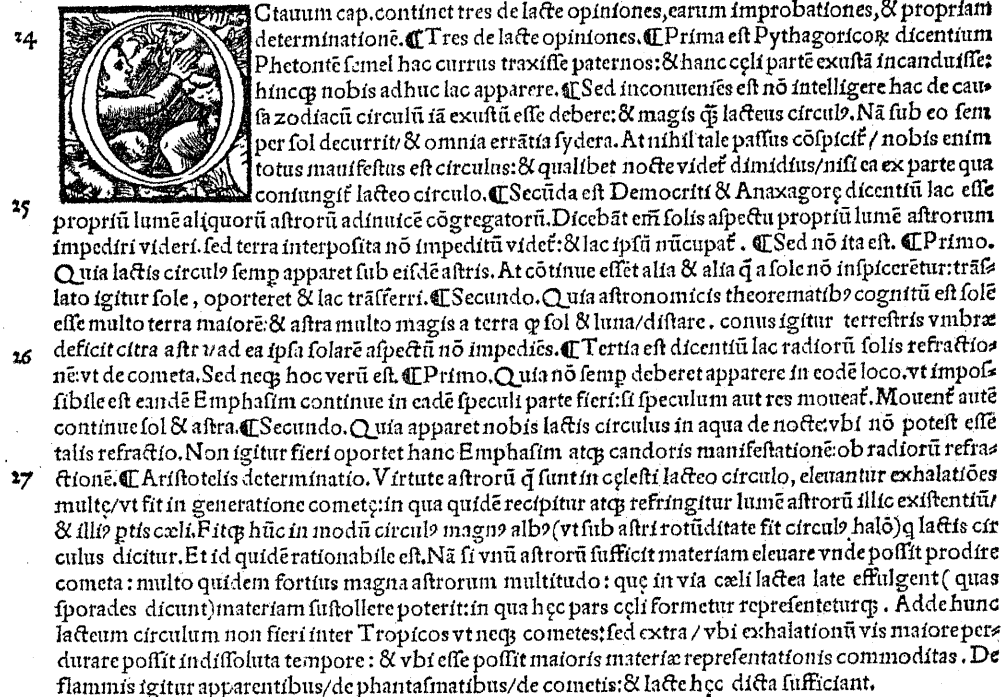 OCtauum cap.continet tres de lacte opiniones,earum improbationes,& propriam
24 determinationē.¶Tres de lacte opiniones.¶Prima est Pythagoricoꝝ dicentium
Phetontē semel hac currus traxisse paternos:& hanc cęli partē exustā incanduisse:
hincqꝫ nobis adhuc lac apparere.¶Sed inconueniēs est nō intelligere hac de cau⸗
sa zodiacū circulū iā exustū esse debere:& magis q̄ȝ lacteus circulꝰ. Nā sub eo sem
per sol decurrit/ & omnia errātia sydera. At nihil tale passus cōspicit᷑ / nobis enim
totus manifestus est circulus:& qualibet nocte videt᷑ dimidius/nisi ea ex parte qua
coniungit᷑ lacteo circulo.¶Secūda est Democriti & Anaxagorę dicentiū lac esse
25 propriū lumē aliquorū astrorū adinuicē cōgregatorū.Dicebāt em̄ solis aspectu propriū lumē astrorum
impediri videri. sed terra interposita nō impeditū videt᷑:& lac ipsū nūcupat᷑ . ¶Sed nō ita est. ¶Primo.
Quia lactis circulꝰ semꝑ apparet sub eisdē astris. At cōtinue esset alia & alia q̄ a sole nō inspicerētur:trās⸗
lato igitur sole , oporteret & lac trāsferri.¶Secundo.Quia astronomicis theorematibꝰ cognitū est solē
esse multo terra maiorē:& astra multo magis a terra qꝫ sol & luna/distare . conus igitur terrestris vmbræ
deficit citra astr vad ea ipsa solarē aspectū nō impediēs.¶Tertia est dicentiū lac radiorū solis refractio⸗
26 nē:vt de cometa.Sed neqꝫ hoc verū est.¶Primo.Quia nō semꝑ deberet apparere in eodē loco.vt impos⸗
sibile est eandē Emphasim continue in eadē speculi parte fieri:si speculum aut res moueat᷑. Mouent᷑ autē
continue sol & astra.¶Secundo.Quia apparet nobis lactis circulus in aqua de nocte:vbi nō potest esse
talis refractio. Non igitur fieri oportet hanc Emphasim atqꝫ candoris manifestationē:ob radiorū refra⸗
27 ctionē.¶Aristotelis determinatio. Virtute astrorū q̄ sunt in cęlesti lacteo circulo, eleuantur exhalatiōes
multę/vt fit in generatione cometę:in qua quidē recipitur atqꝫ refringitur lumē astrorū illic existentiū/
& illiꝰ ꝑtis cæli.Fitqꝫ hūc in modū circulꝰ magnꝰ albꝰ(vt sub astri rotūditate fit circulꝰ halō)q lactis cir
culus dicitur. Et id quidē rationabile est.Nā si vnū astrorū sufficit materiam eleuare vnde possit prodire
cometa : multo quidem fortius magna astrorum multitudo : quę in via cæli lactea late effulgent ( quas
sporades dicunt)materiam sustollere poterit:in qua hęc pars cęli formetur repręsenteturqꝫ . Adde hunc
lacteum circulum non fieri inter Tropicos vt neqꝫ cometes:sed extra / vbi exhalationū vis maiore per⸗
durare possit indissoluta tempore : & vbi esse possit maioris materiæ repręsentationis commoditas . De
flammis igitur apparentibus/de phantasmatibus/de cometis:& lacte hęc dicta sufficiant.